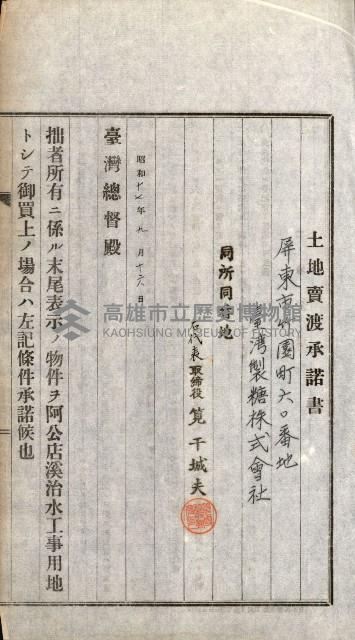 土地賣渡承諾書
屏東市公園町六〇番地
臺灣製糖株式會社
同所同番地
右代表取締役 筧干城夫
昭和十七年九月十六日
臺灣總督殿
拙者所有ニ係ル末尾表示ノ物件ヲ阿公店溪治水工事用地
トシテ御買上ノ場合ハ左記條件承諾候也
高雄市立歷史博物館
KAOHSIUNG MUSEUM OF HISTORY